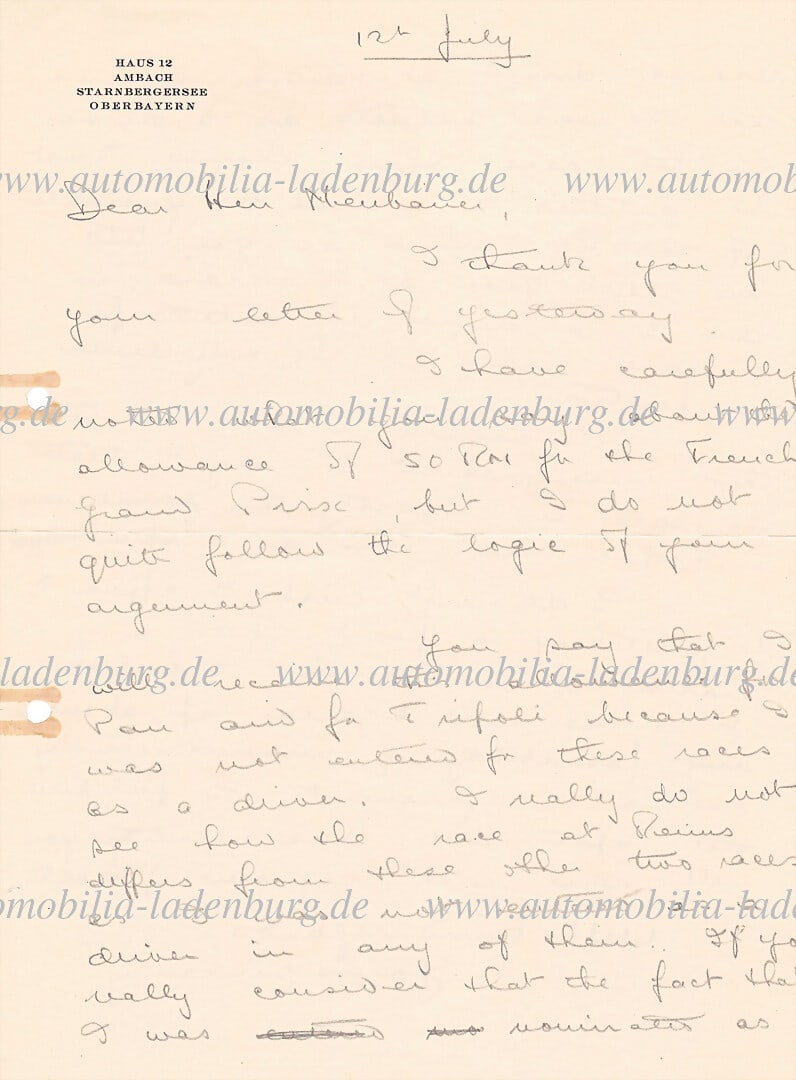 12th July
HAUS 12
AMBACH
STARNBERGERSEE
OBERBAYERN
www.automobilia-ladenburg.de www.automob
Dear Herr Neubauer,
I thank you for
your letter of yesterday.
I have carefully
g.de www.automobilia-ladenburg.de www
noted what you say about the
allowance of 50 RM for the French
Grand Prix, but I do not
quite follow the logic of your
argument.
You say that I
-ladenburg.de www.automobilia-ladenburg.de
will receive this allowance for
Pau and for Tripoli because I
was not entered for these races
as a driver. I really do not
see how the race at Reims
differs from these other two races
omobilia-ladenburg.de www.automobilia-laden
as I was not entered as a
driver in any of them. If yo
really consider that the fact that
I was entered nominated as